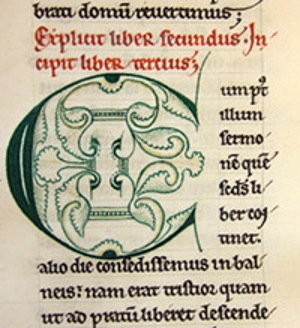 brati domū reuertimus ;
Explicit liber secundus. In
cipit liber tercius ;
C ump't
illum
sermo
nē quē
seds li
ber coӡ
tinet.
alio die consedissemus in bal
neis: nam erat tristior quam
ut ad pratū liberet descende